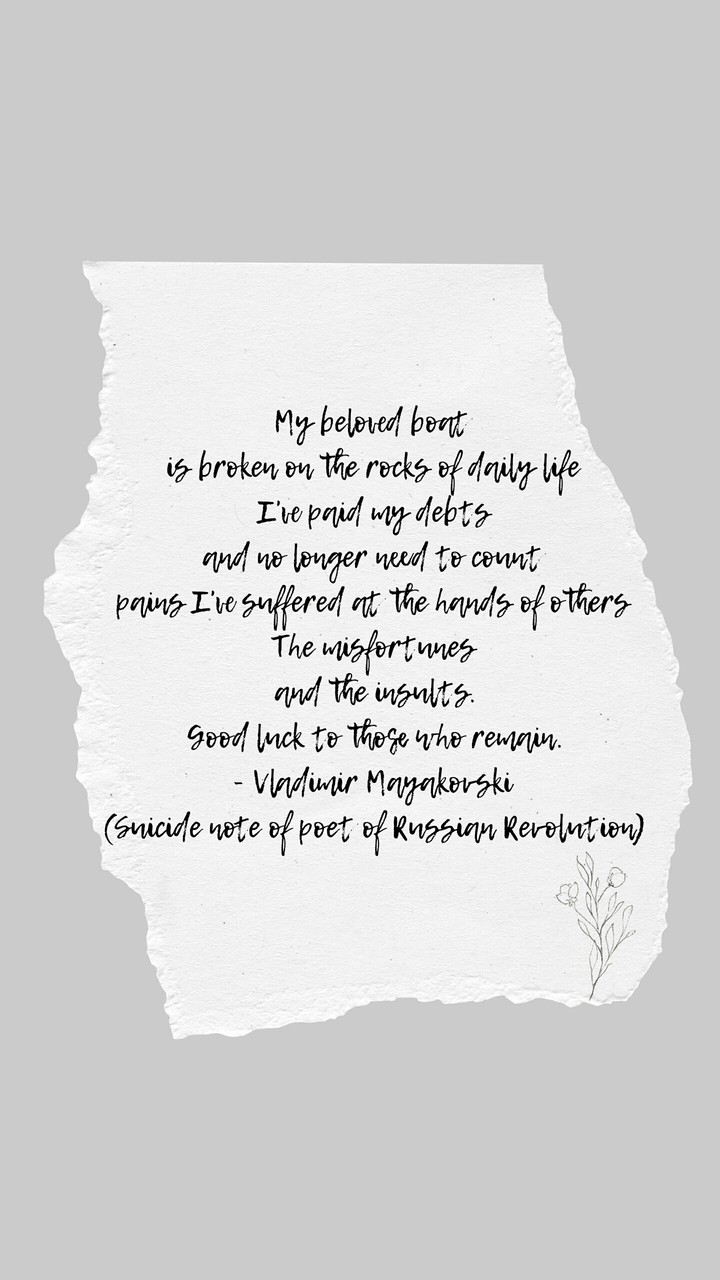 My beloved boat
is broken on the rocks of daily life
I've paid my debts
and no longer need to count
pains I've suffered at the hands of others
The misfortunes
and the insults.
Good luck to those who remain.
- Vladimir Mayakovski
(Suicide note of poet of Russian Revolution)